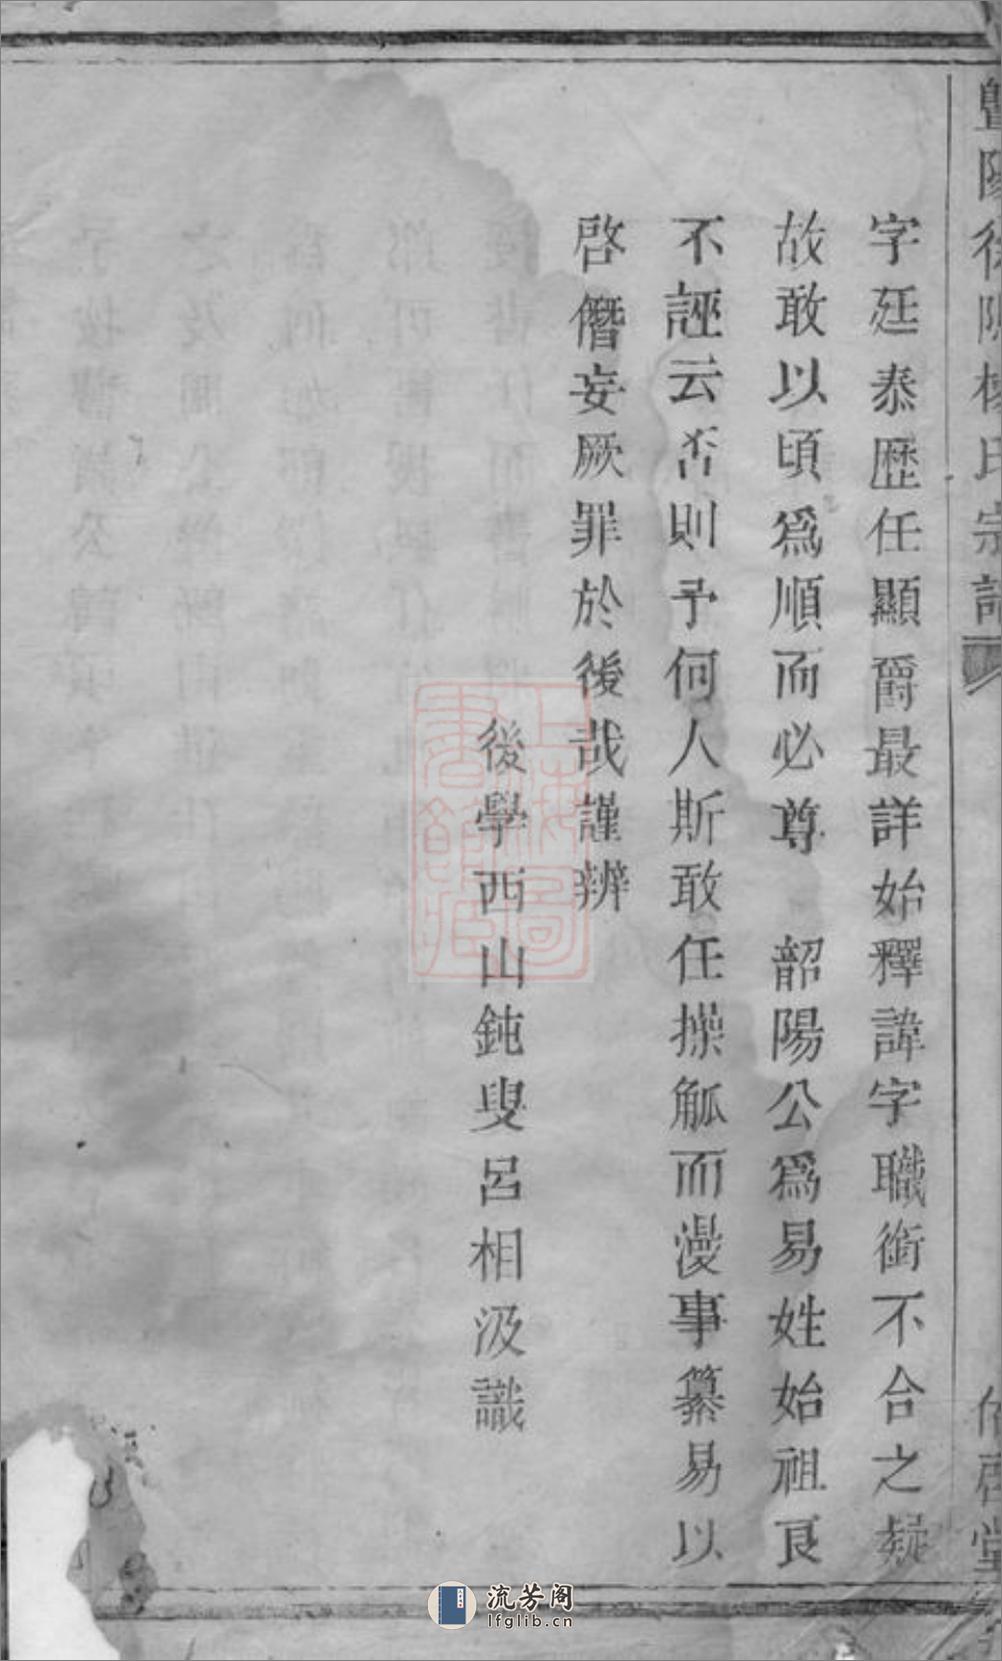 暨陽徐陳楊氏宗譜
佑啓堂
字廷泰歷任顯爵最詳始釋諱字職銜不合之疑
故敢以頃爲順而必尊　韶陽公爲易姓始祖良
不誣云否則予何人斯敢任操觚而漫事纂易以
啓僭妄厥罪於後哉謹辨
後學西山鈍叟呂相汲識
上海圖書館藏
流芳阁
lfglib.cn